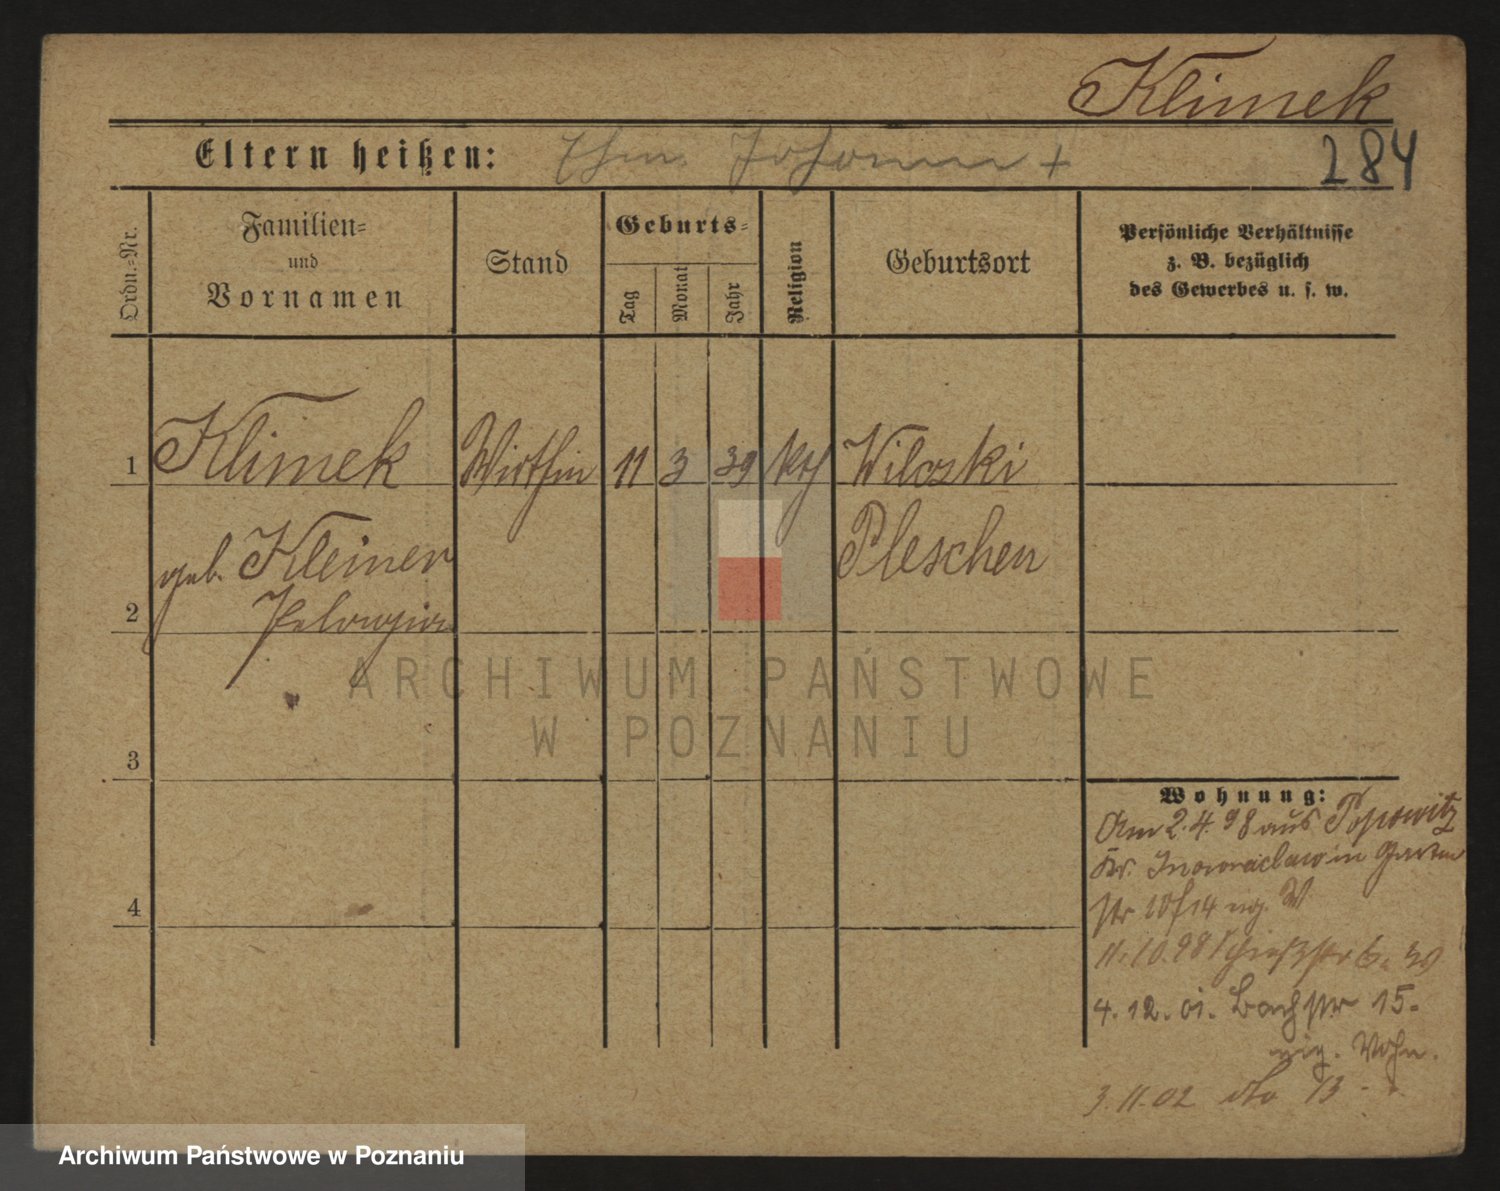 Klimek
Eltern heißen: Ehm. Johann +
284
Ordn.-Nr.
Familien-
und
Vornamen
Stand
Geburts-
Tag
Monat
Jahr
Religion
Geburtsort
Persönliche Verhältnisse
z. B. bezüglich
des Gewerbes u. s. w.
1 Klimek Wirthin 11 3 39 kth Wiloski
Pleschen
geb. Kleiner
2 Pelongia
3
4
Wohnung:
Am 2.4.98 aus Popowitz
Kr. Inowraclaw in Garten
str 10/14 eig. W
11.10.98 Schießstr 6. W
4.12.01. Bachstr 15.
eig. Wohn.
3.11.02 dto 13
ARCHIWUM PAŃSTWOWE
W POZNANIU
Archiwum Państwowe w Poznaniu